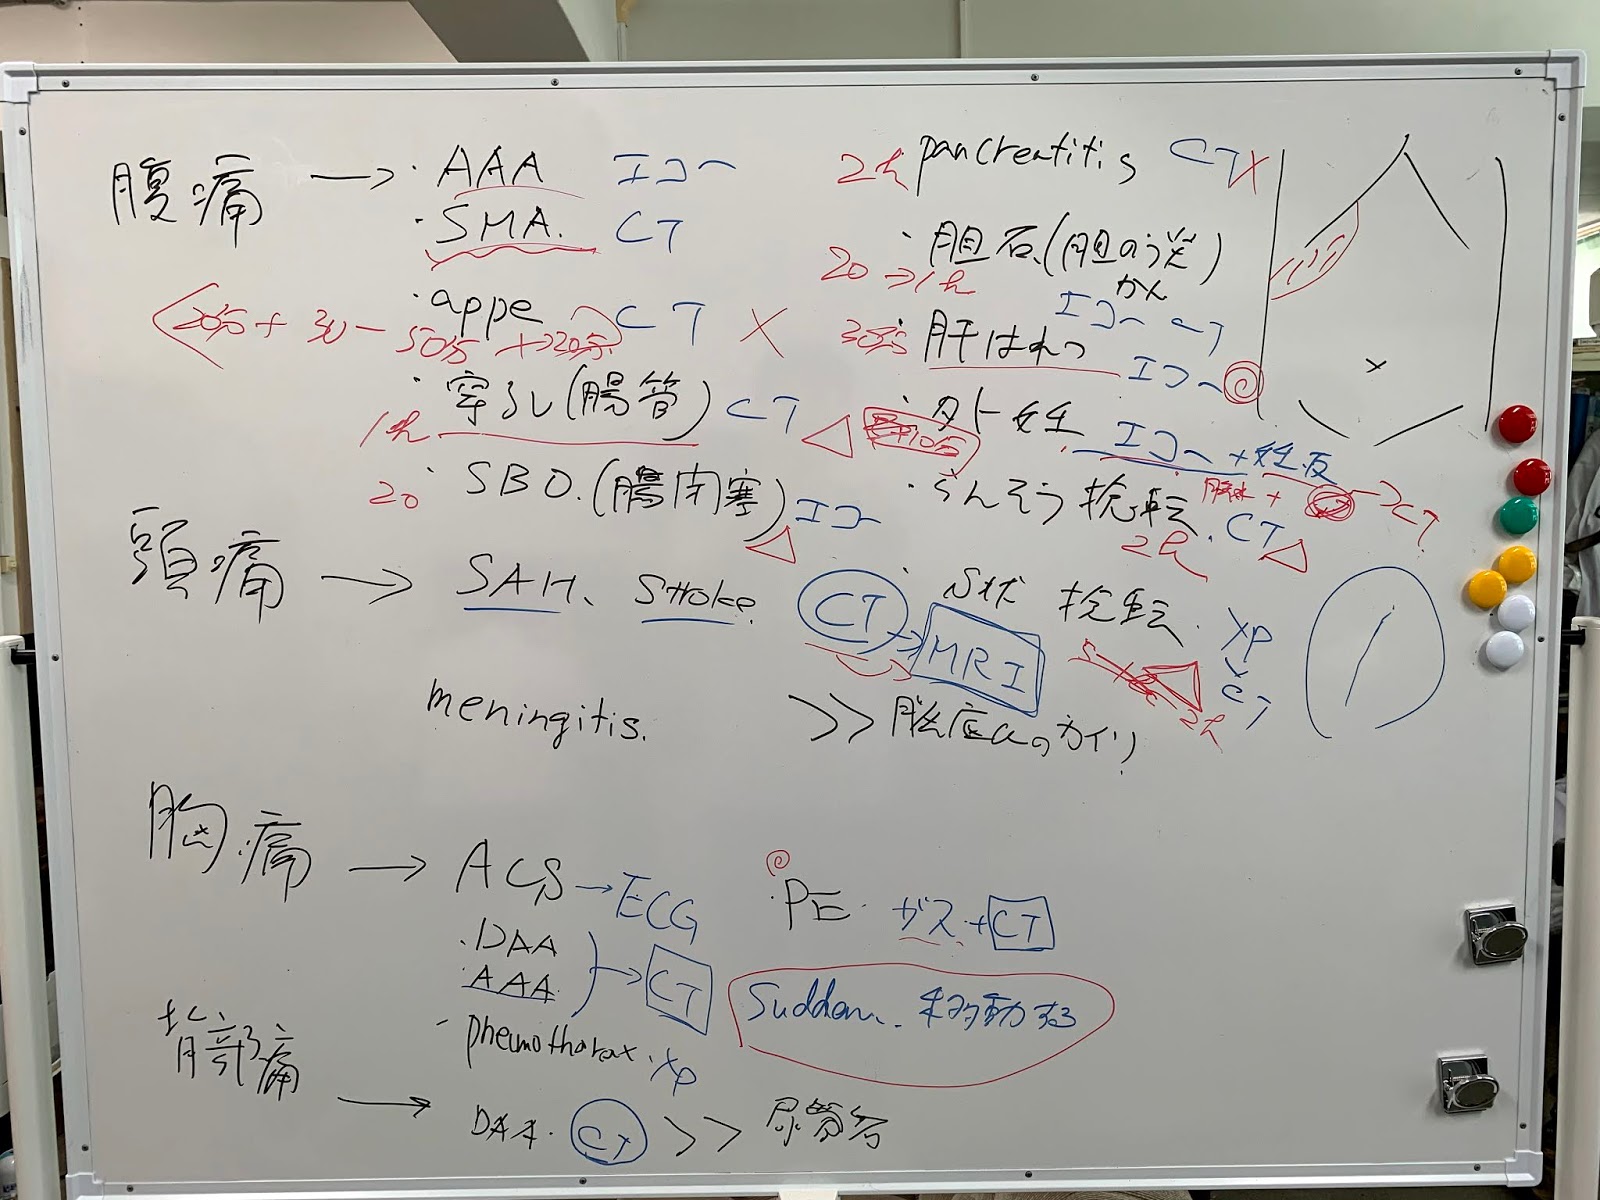 腹痛 → ・AAA エコー
・SMA. CT
・appe CT ×
20分 + 30 - 50分 + 20分
・穿孔 (腸管) CT △
1h
・SBO. (腸閉塞) エコー △
20
2h pancreatitis CT ×
・胆石 (胆のう炎) エコー CT
かん
20 → 1h
・肝はれつ エコー
30分
・外妊 エコー + 妊反
+10分
腹水 + → CT
・らんそう捻転. CT △
2h
・S状 捻転. Xp
CT
2h
頭痛 → SAH、 Stroke. CT → MRI
meningitis. >> 脳底
胸痛 → ACS → ECG
・DAA
・AAA → CT
・pneumothorax. Xp
・PE. ガス + CT
Sudden、移動する
背部痛
→ DAA. CT >> 尿管